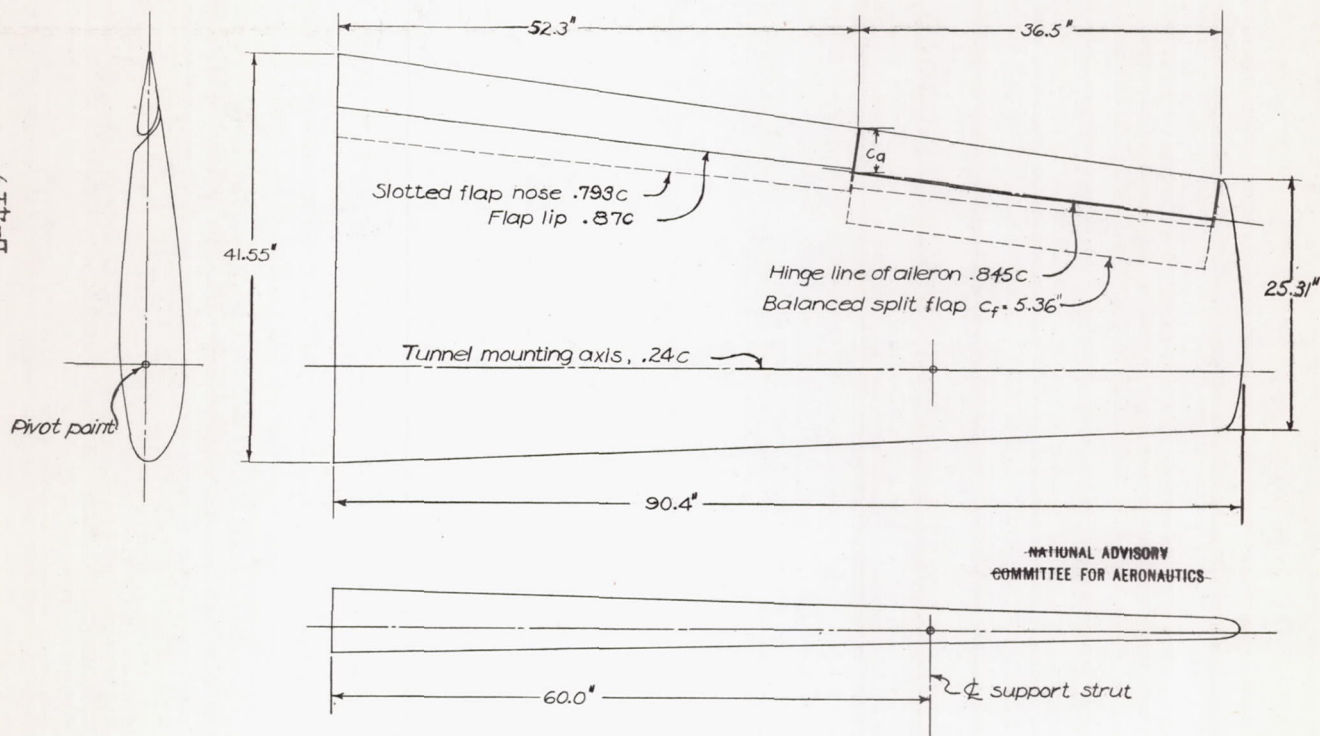 52.3"
36.5"
ca
Slotted flap nose .793c
Flap lip .87c
41.55"
Hinge line of aileron .845c
Balanced split flap cf = 5.36"
25.31"
Tunnel mounting axis, .24c
Pivot point
90.4"
NATIONAL ADVISORY
COMMITTEE FOR AERONAUTICS
60.0"
℄ support strut